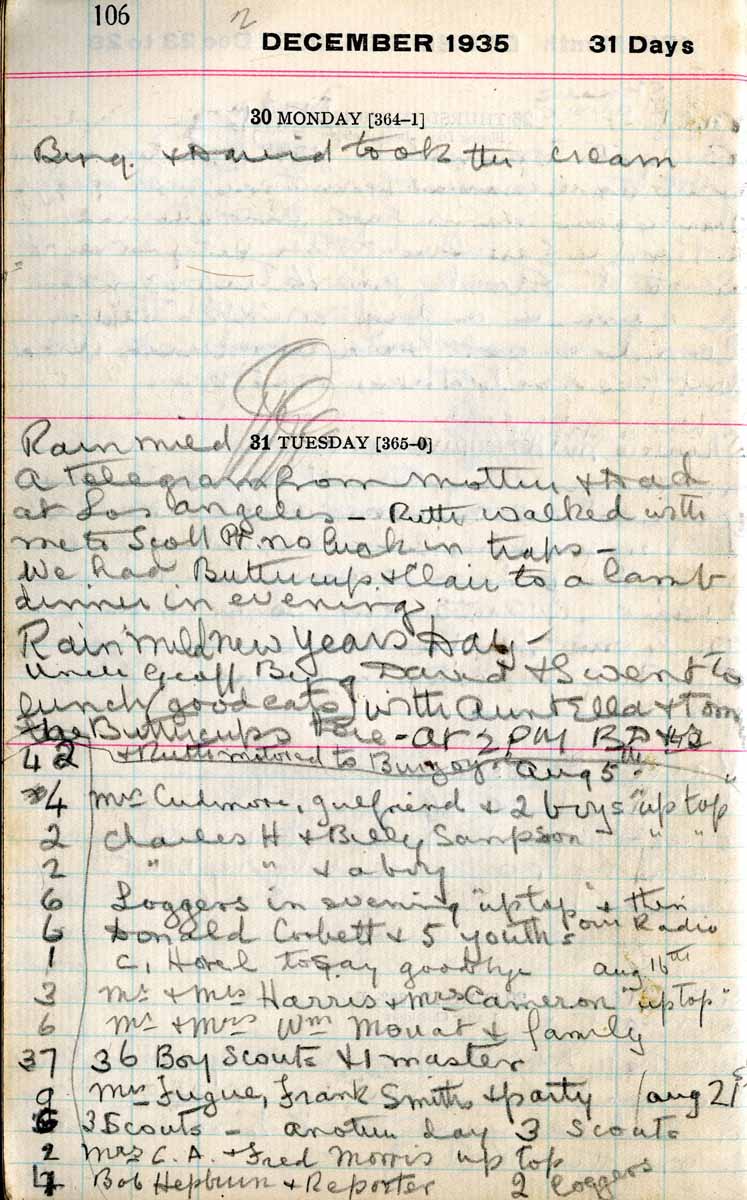 106
DECEMBER 1935 31 Days
30 MONDAY [364–1]
Bing. & David took the cream
Rain mild 31 TUESDAY [365–0]
A Telegram from Mother & Dad
at Los Angeles – Ruth walked with
me to Scott Pt. no luck in traps –
We had Buttercups & Clair to a lamb
dinner in evening
Rain mild New Years Day –
Uncle Geoff Bing David & I went to
lunch (good eats) with Aunt Ella & Tom
the Buttercups there – at 2 PM
42 & Ruth motored to Aug 5th
4 Mrs Cudmore, gulfriend & 2 boys "up top
2 Charles H & Billy Sampson – " "
2 " " & a boy
6 Loggers in evening "up top" & then
6 Donald Corbett & 5 youths our Radio
1 C. Horel to say goodbye Aug 16th
3 Mr & Mrs Harris & Mrs Cameron "up top"
6 Mr & Mrs Wm Mouat & family
37 36 Boy Scouts & 1 master
9 Mrs Fugue, Frank Smiths & party /Aug 21st
6 3 Scouts – another day 3 Scouts
2 Mrs C. A. & Fred Morris up top
4 Bob Hepburn & Reporter 2 loggers